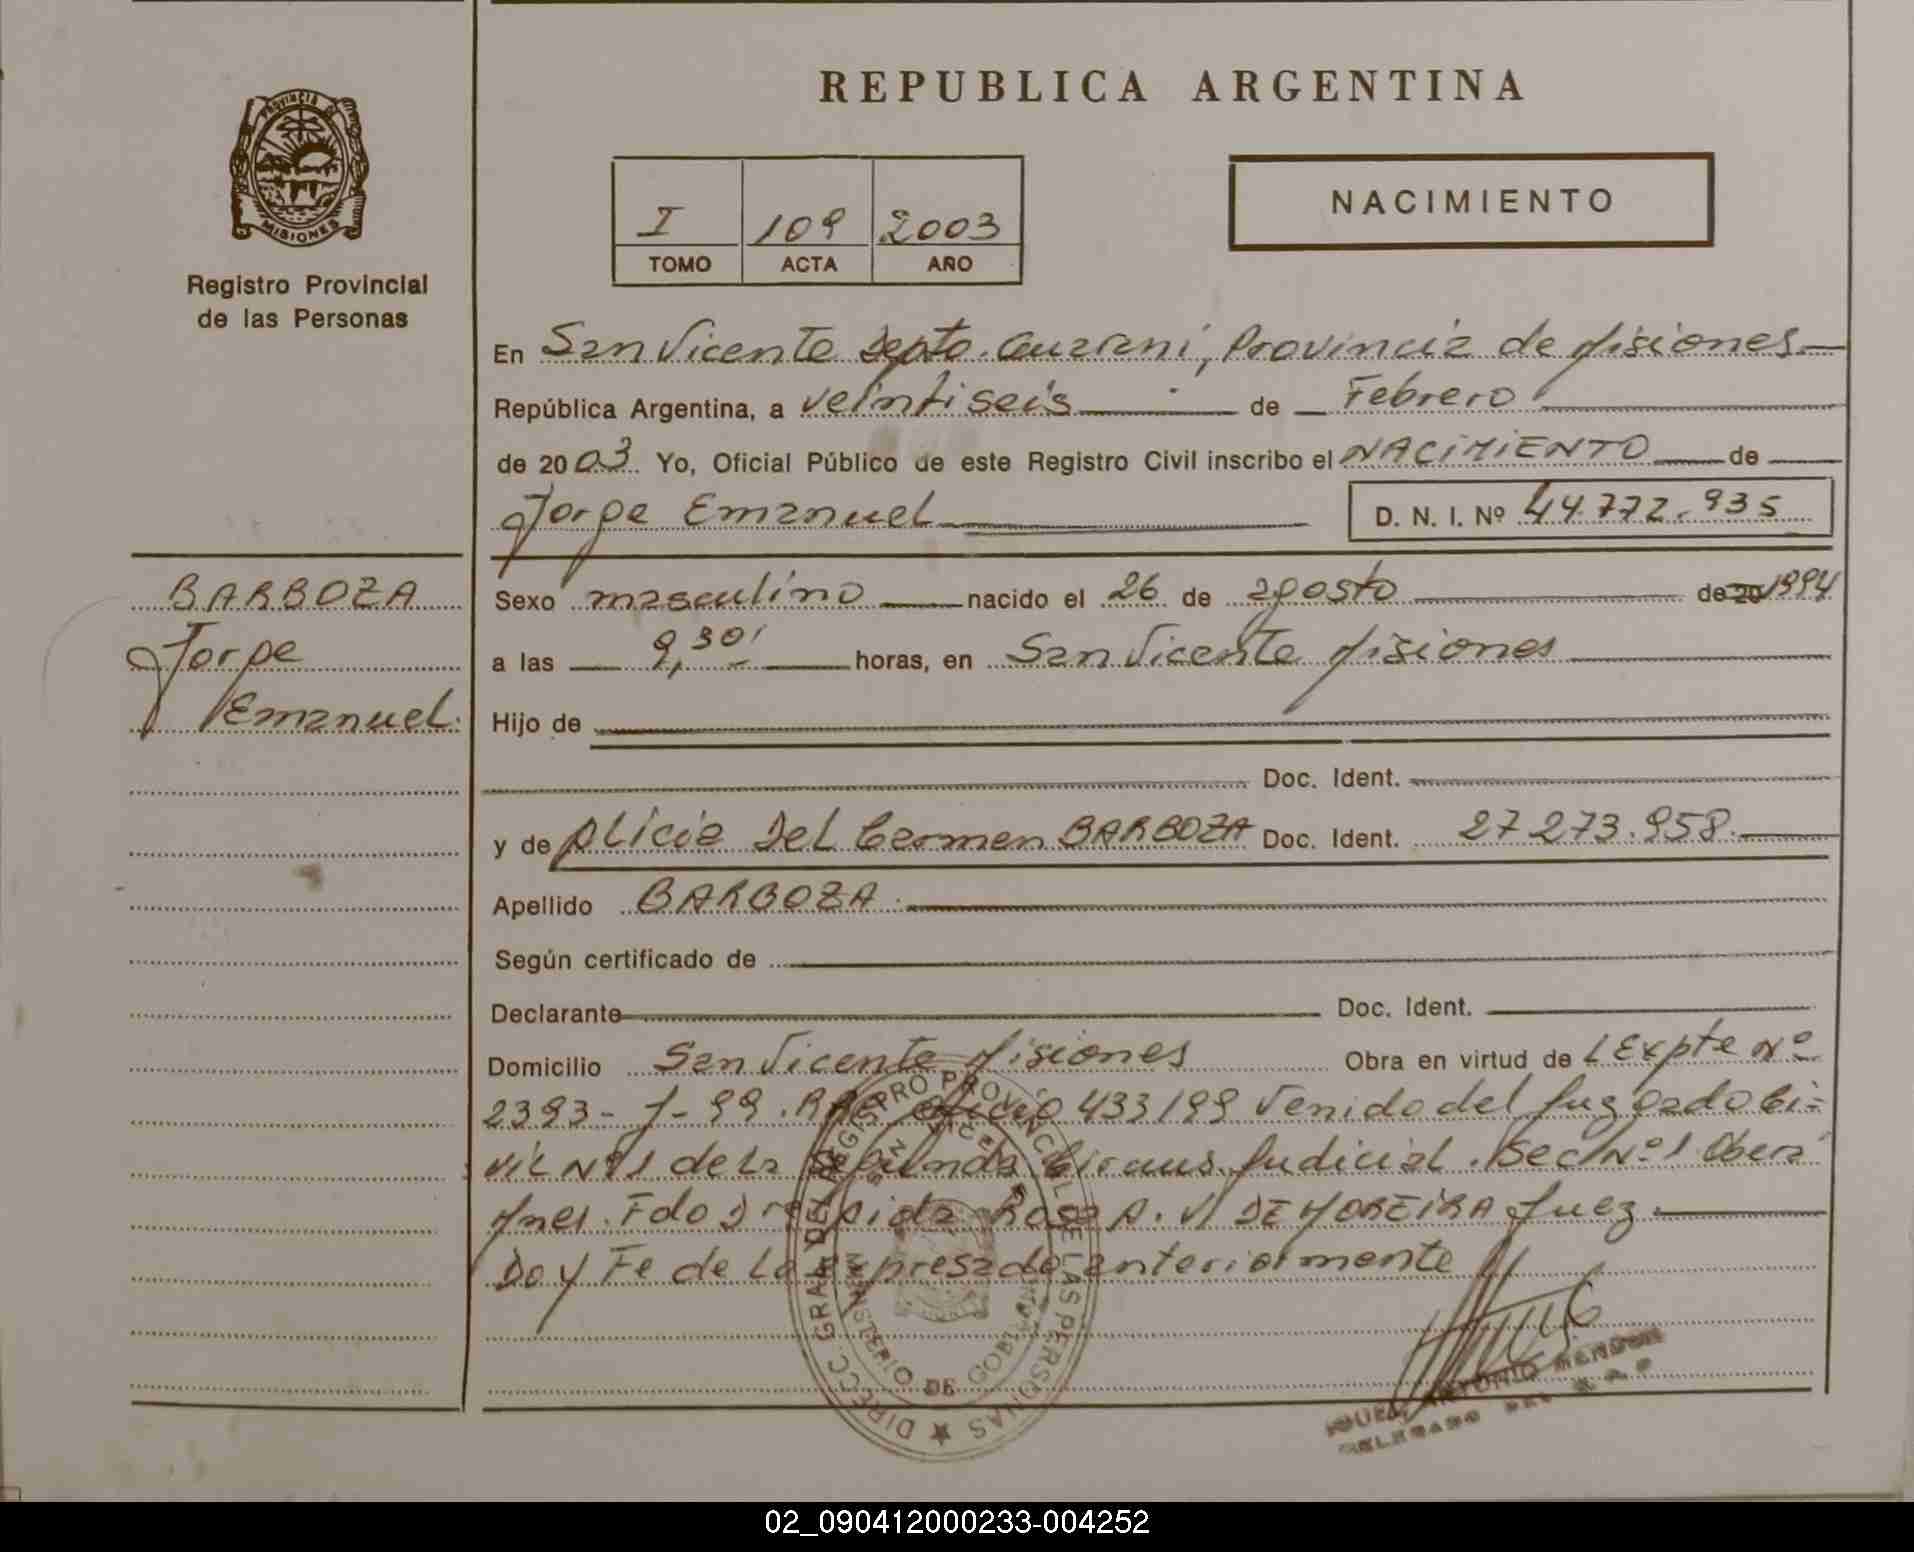 PROVINCIA DE
MISIONES
Registro Provincial
de las Personas
REPUBLICA ARGENTINA
I 109 2003
TOMO ACTA AÑO
NACIMIENTO
En San Vicente Depto. Guarani, Provincia de Misiones
República Argentina, a veintiseis de Febrero
de 2003 Yo, Oficial Público de este Registro Civil inscribo el NACIMIENTO de
Jorge Emanuel D. N. I. Nº 44.772.935
BARBOZA
Jorge
Emanuel.
Sexo masculino nacido el 26 de agosto de 20 1994
a las 9,30' horas, en San Vicente Misiones
Hijo de
Doc. Ident.
y de Alicia Del Carmen BARBOZA Doc. Ident. 27 273.958.
Apellido BARBOZA.
Según certificado de
Declarante Doc. Ident.
Domicilio San Vicente Misiones Obra en virtud de L Expte Nº
2393- J- 99. oficio 433/99 Venido del Juzgado Ci-
vil Nº 1 de La Segunda Circuns. Judicial. Sec Nº 1 Obera
Mnes. Fdo Dra Rosa A. V DE MOREIRA Juez
Doy Fe de Lo expresado anteriormente
DIRECC. GRAL. DEL REGISTRO PROVINCIAL DE LAS PERSONAS
MINISTERIO DE GOBIERNO
ANTONIO
DELEGADO DEL R. P. P.
02_090412000233-004252